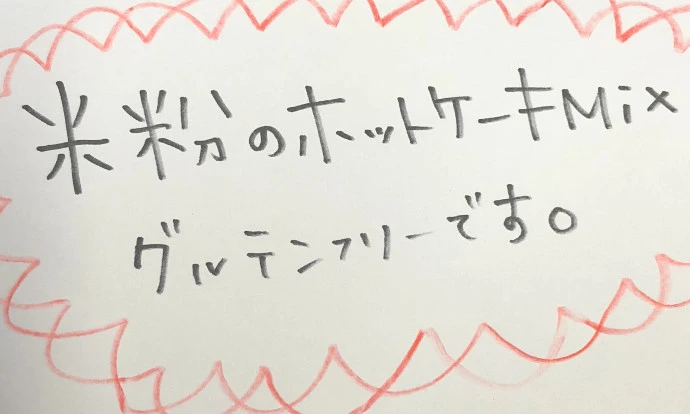 米粉のホットケーキMix
グルテンフリーです。